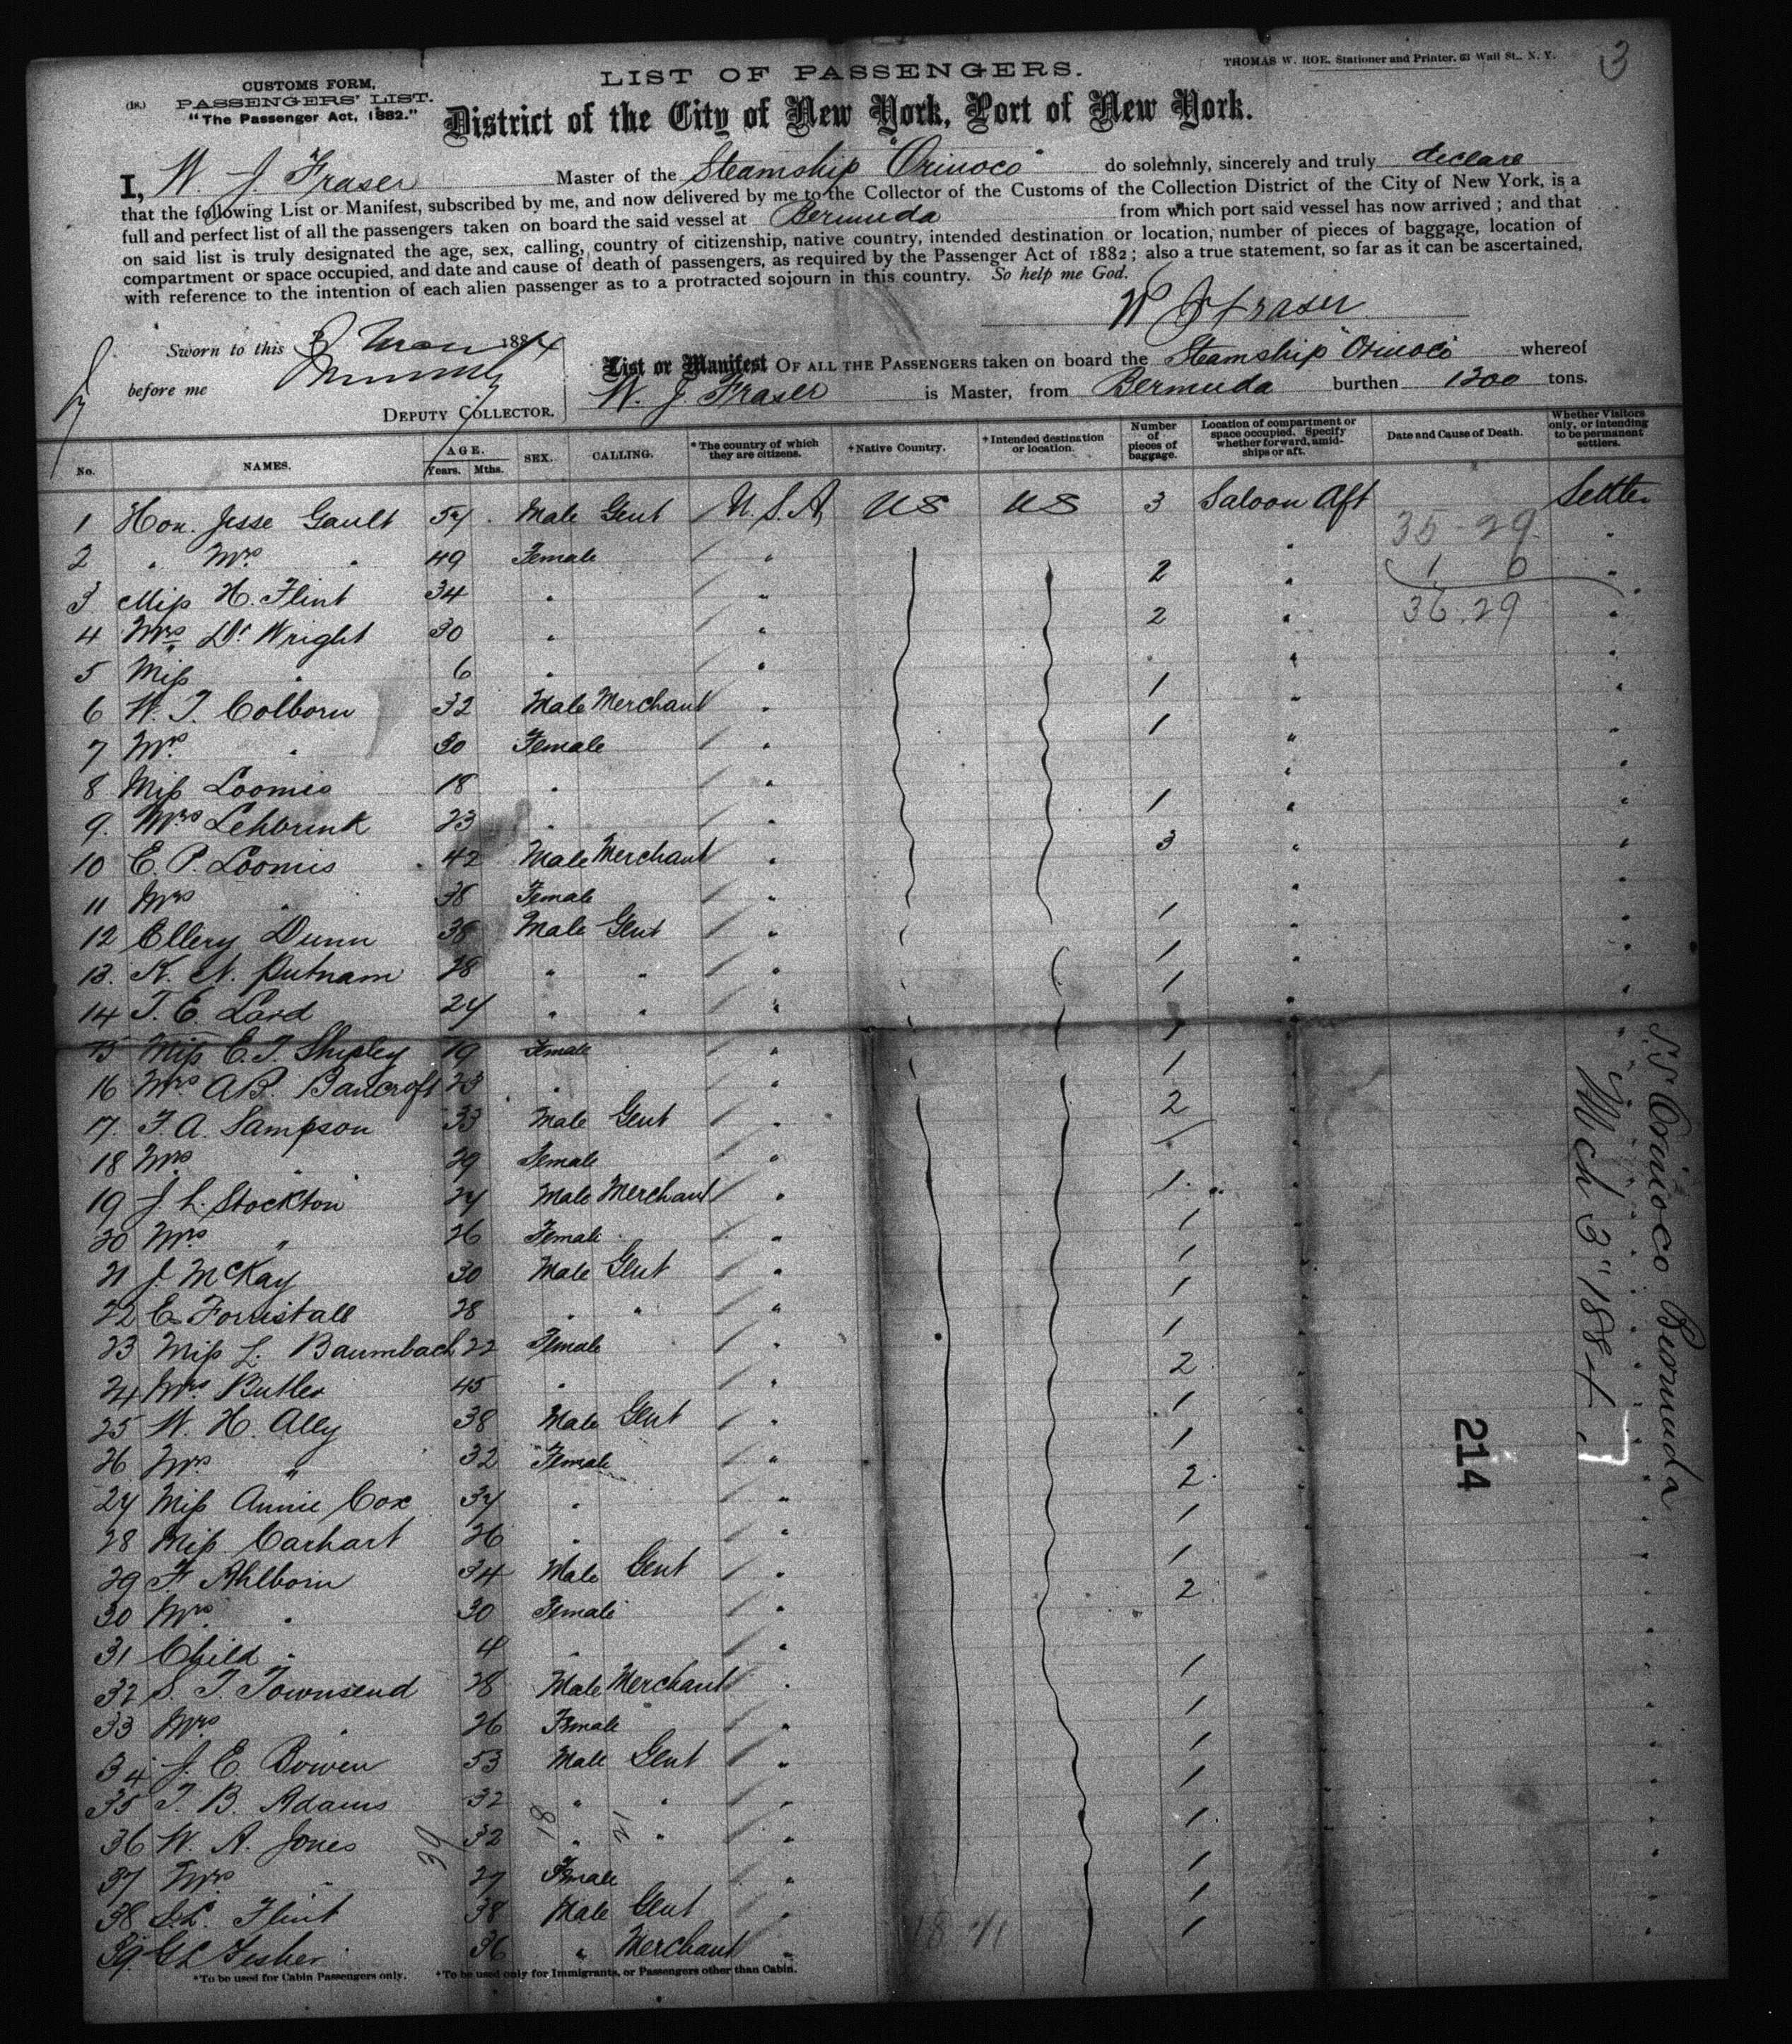 3
CUSTOMS FORM,
(18.) PASSENGERS' LIST.
"The Passenger Act, 1882."
LIST OF PASSENGERS.
THOMAS W. HOE, Stationer and Printer, 63 Wall St., N. Y.
District of the City of New York, Port of New York.
I, W. J. Fraser Master of the Steamship "Orinoco" do solemnly, sincerely and truly declare
that the following List or Manifest, subscribed by me, and now delivered by me to the Collector of the Customs of the Collection District of the City of New York, is a
full and perfect list of all the passengers taken on board the said vessel at Bermuda from which port said vessel has now arrived; and that
on said list is truly designated the age, sex, calling, country of citizenship, native country, intended destination or location, number of pieces of baggage, location of
compartment or space occupied, and date and cause of death of passengers, as required by the Passenger Act of 1882; also a true statement, so far as it can be ascertained,
with reference to the intention of each alien passenger as to a protracted sojourn in this country. So help me God.
W J Fraser
Sworn to this 3 1884
before me
DEPUTY COLLECTOR.
List or Manifest OF ALL THE PASSENGERS taken on board the Steamship "Orinoco" whereof
W. J. Fraser is Master, from Bermuda burthen 1200 tons.
No. NAMES. AGE. Years. Mths. SEX. CALLING. *The country of which they are citizens. †Native Country. †Intended destination or location. Number of pieces of baggage. Location of compartment or space occupied. Specify whether forward, amidships or aft. Date and Cause of Death. Whether Visitors only, or intending to be permanent settlers.
1 Hon. Jesse Gault 57 Male Gent U.S.A. US US 3 Saloon Aft Settler
35-29
2 " Mrs " 49 Female " "
1 0
3 Miss H. Flint 34 " " 2 " "
36.29
4 Mrs Dr Wright 30 " " 2 " "
5 Miss " 6 " " " "
6 W. T. Colborn 32 Male Merchant " 1 " "
7 Mrs " 30 Female " 1 " "
8 Miss Loomis 18 " " " "
9. Mrs Lehbrink 23 " " 1 " "
10 E. P. Loomis 42 Male Merchant " 3 " "
11 Mrs " 38 Female " " "
12 Ellery Dunn 38 Male Gent " 1 " "
13. K. N. Putnam 28 " " " 1 " "
14 T. E. Lard 24 " " " 1 " "
15 Miss E. T. Shipley 19 Female " 1 "
16 Mrs A B. Bancroft 23 " " 1 "
17. F. A. Sampson 33 Male Gent " 2 "
18 Mrs " 29 Female " "
19 J. L. Stockton 27 Male Merchant " 1 "
20 Mrs " 26 Female " 1 "
21 J. McKay 30 Male Gent " 1 "
22 E Forristall 28 " " " 1 "
23 Miss L. Baumbach 22 Female " 1 "
24 Mrs Butler 45 " " 2 "
25 W. H. Ally 38 Male Gent " 1 "
26 Mrs " 32 Female " 1 "
27 Miss Annie Cox 37 " " 2 "
28 Miss Carhart 26 " " 1 "
29 F. Ahlborn 34 Male Gent " 1 "
30 Mrs " 30 Female " 2 "
31 Child " 4 " " "
32 S. T. Townsend 28 Male Merchant " 1 "
33 Mrs " 26 Female " 1 "
34 J. E. Bowen 53 Male Gent " 1 "
35 T. B. Adams 32 " " " 1 "
36 W. A. Jones 32 " " " 1 "
39 18 21
37 Mrs " 27 Female " 1 "
38 Flint 38 Male Gent " 1 "
39. G L Fisher 36 " Merchant " 1 "
18 21
*To be used for Cabin Passengers only. †To be used only for Immigrants, or Passengers other than Cabin.
S.S. Orinoco Bermuda
Mch 3" 1884.
214